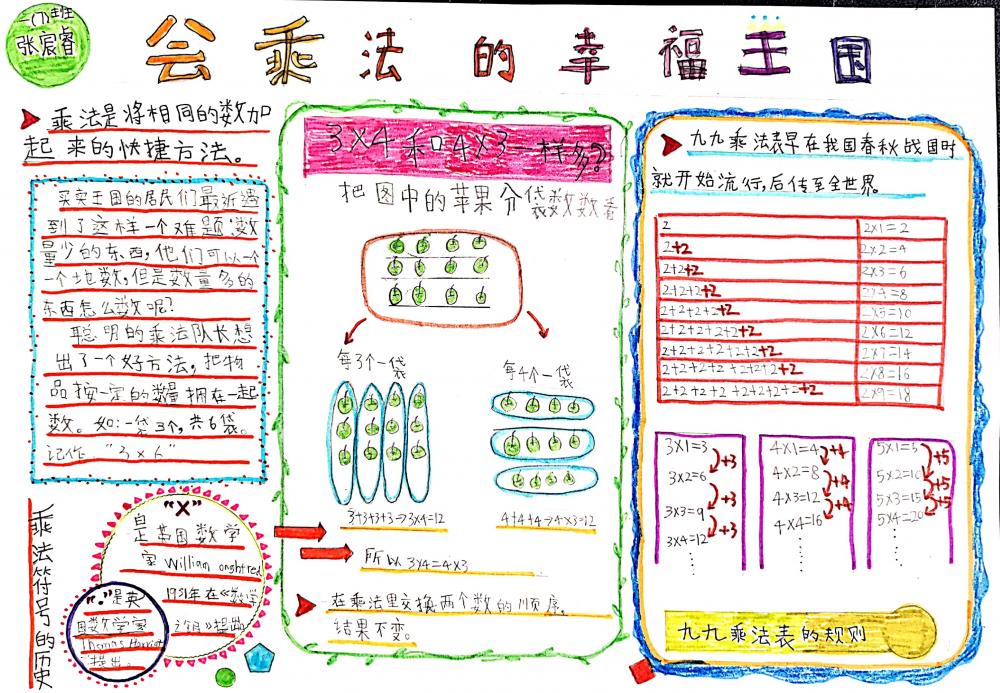 一(7)班
张宸睿
会乘法的幸福王国
乘法是将相同的数加
起来的快捷方法。
买卖王国的居民们最近遇
到了这样一个难题:数
量少的东西,他们可以一个
一个地数,但是数量多的
东西怎么数呢?
聪明的乘法队长想
出了一个好方法,把物
品按一定的数量拥在一起
数。如:一袋3个,共6袋。
记作 "3×6"
乘法符号的历史
"×"
是英国数学
家 William onghtred
1931年在《数学
之钥》提出
"·"是英
国数学家
Thomas Harriot
提出。
3×4和4×3一样多?
把图中的苹果分袋数数看
每3个一袋
每4个一袋
3+3+3+3→3×4=12
4+4+4→4×3=12
所以3×4=4×3
在乘法里交换两个数的顺序,
结果不变。
九九乘法表早在我国春秋战国时
就开始流行,后传至全世界。
2 2×1=2
2+2 2×2=4
2+2+2 2×3=6
2+2+2+2 2×4=8
2+2+2+2+2 2×5=10
2+2+2+2+2+2 2×6=12
2+2+2+2+2+2+2 2×7=14
2+2+2+2+2+2+2+2 2×8=16
2+2+2+2+2+2+2+=+2 2×9=18
3×1=3
+3
3×2=6
+3
3×3=9
+3
3×4=12
⋮
4×1=4
+4
4×2=8
+4
4×3=12
+4
4×4=16
⋮
5×1=5
+5
5×2=10
+5
5×3=15
+5
5×4=20
⋮
九九乘法表的规则